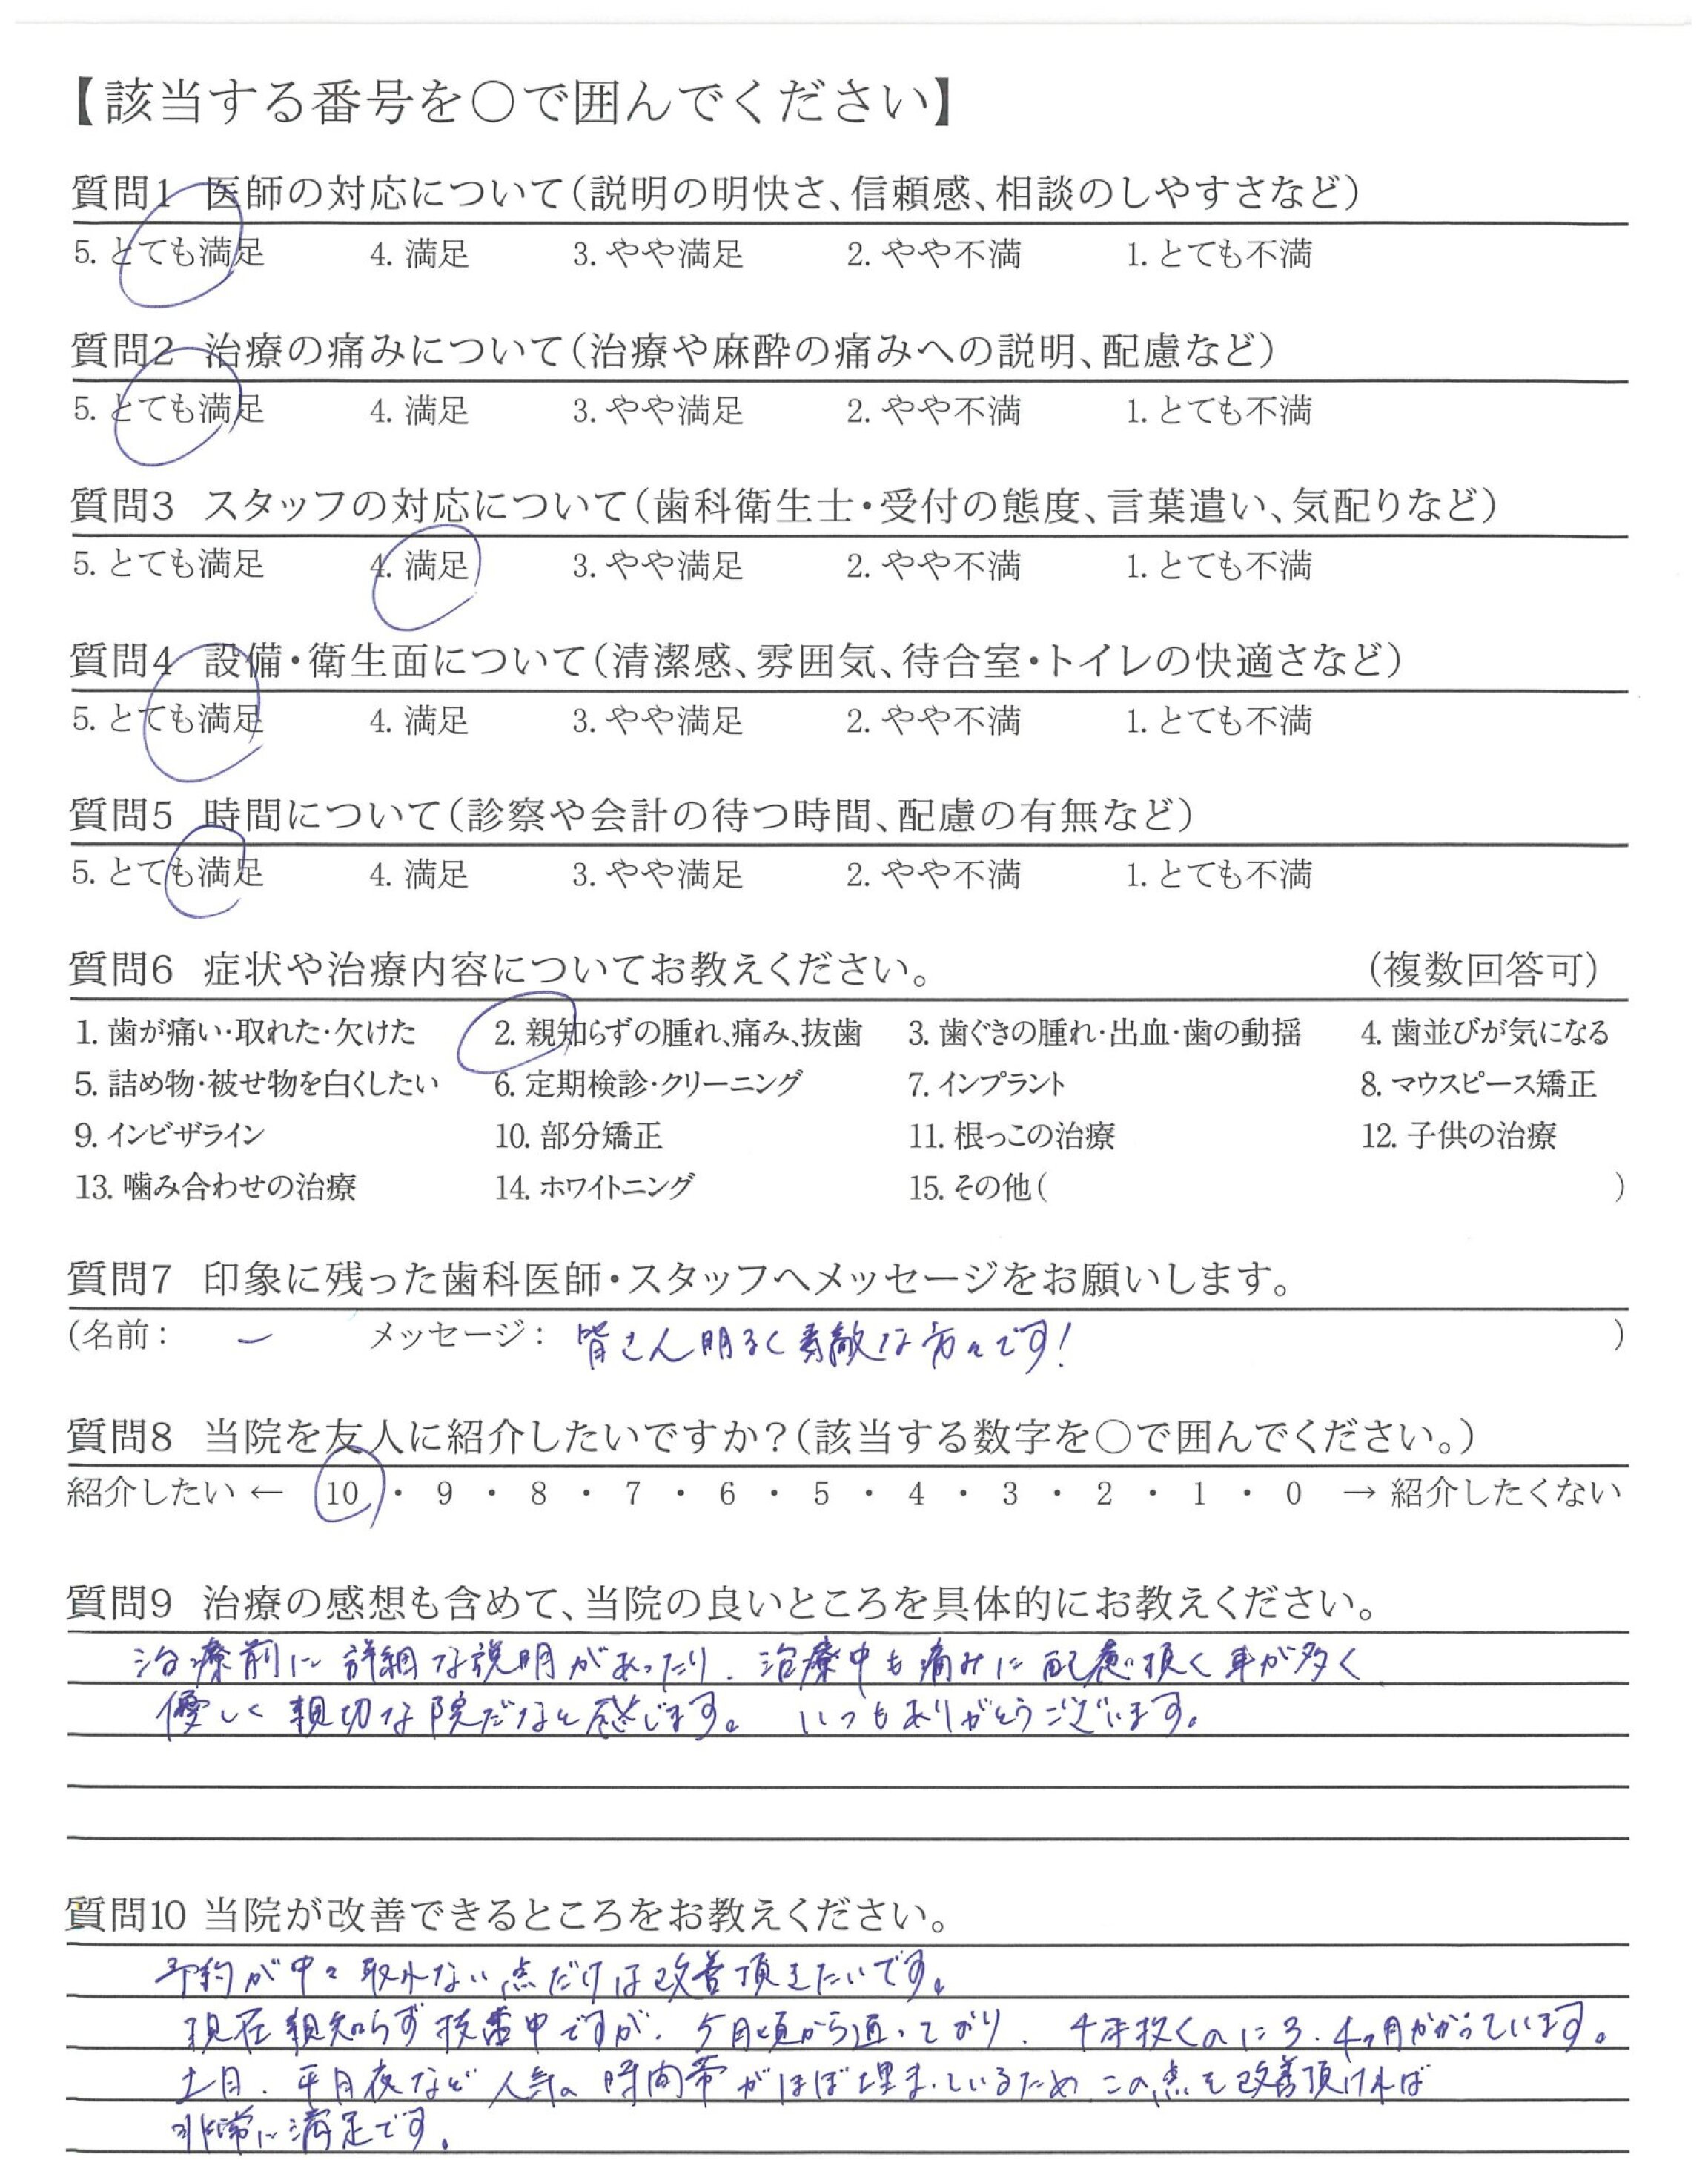 【該当する番号を○で囲んでください】
質問1 医師の対応について(説明の明快さ、信頼感、相談のしやすさなど)
5. とても満足 4. 満足 3. やや満足 2. やや不満 1. とても不満
質問2 治療の痛みについて(治療や麻酔の痛みへの説明、配慮など)
5. とても満足 4. 満足 3. やや満足 2. やや不満 1. とても不満
質問3 スタッフの対応について(歯科衛生士・受付の態度、言葉遣い、気配りなど)
5. とても満足 4. 満足 3. やや満足 2. やや不満 1. とても不満
質問4 設備・衛生面について(清潔感、雰囲気、待合室・トイレの快適さなど)
5. とても満足 4. 満足 3. やや満足 2. やや不満 1. とても不満
質問5 時間について(診察や会計の待つ時間、配慮の有無など)
5. とても満足 4. 満足 3. やや満足 2. やや不満 1. とても不満
質問6 症状や治療内容についてお教えください。 (複数回答可)
1. 歯が痛い・取れた・欠けた 2. 親知らずの腫れ、痛み、抜歯 3. 歯ぐきの腫れ・出血・歯の動揺 4. 歯並びが気になる
5. 詰め物・被せ物を白くしたい 6. 定期検診・クリーニング 7. インプラント 8. マウスピース矯正
9. インビザライン 10. 部分矯正 11. 根っこの治療 12. 子供の治療
13. 噛み合わせの治療 14. ホワイトニング 15. その他( )
質問7 印象に残った歯科医師・スタッフへメッセージをお願いします。
(名前: ー メッセージ: 皆さん明るく素敵な方々です! )
質問8 当院を友人に紹介したいですか?(該当する数字を○で囲んでください。)
紹介したい ← 10 ・ 9 ・ 8 ・ 7 ・ 6 ・ 5 ・ 4 ・ 3 ・ 2 ・ 1 ・ 0 → 紹介したくない
質問9 治療の感想も含めて、当院の良いところを具体的にお教えください。
治療前に詳細な説明があったり、治療中も痛みに配慮頂く事が多く
優しく親切な院だなと感じます。 いつもありがとうございます。
質問10 当院が改善できるところをお教えください。
予約が中々取れない点だけは改善頂きたいです。
現在親知らず抜歯中ですが、5月頃から通っており、4本抜くのに3、4ヶ月かかっています。
土日、平日夜など人気の時間帯がほぼ埋まっているためこの点を改善頂ければ
非常に満足です。